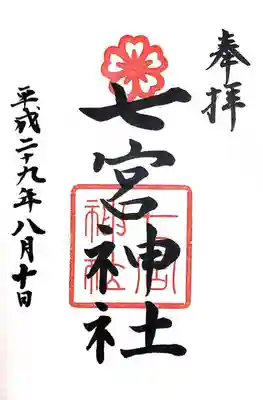 奉拝
七宮神社
七宮
神社
平成二十九年八月十日